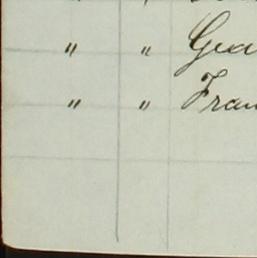 " " Geo
" " Fran